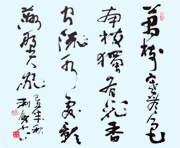 萬樹寒無色
南枝獨有花香
聞流水處影
落野人家